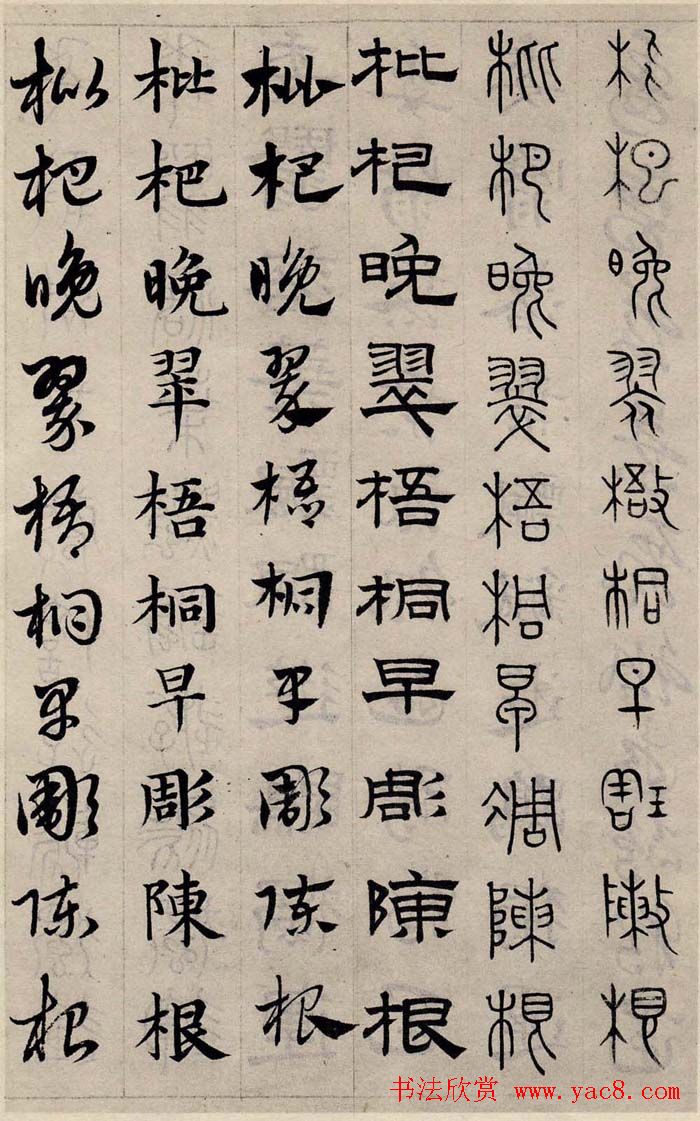 枇杷晚翠梧桐早彫陳根
枇杷晚翠梧桐早凋陳根
枇杷晚翠梧桐早彫陳根
枇杷晚翠梧桐早彫陳根
枇杷晚翠梧桐早彫陳根
枇杷晚翠梧桐早彫陳根
书法欣赏 www.yac8.com